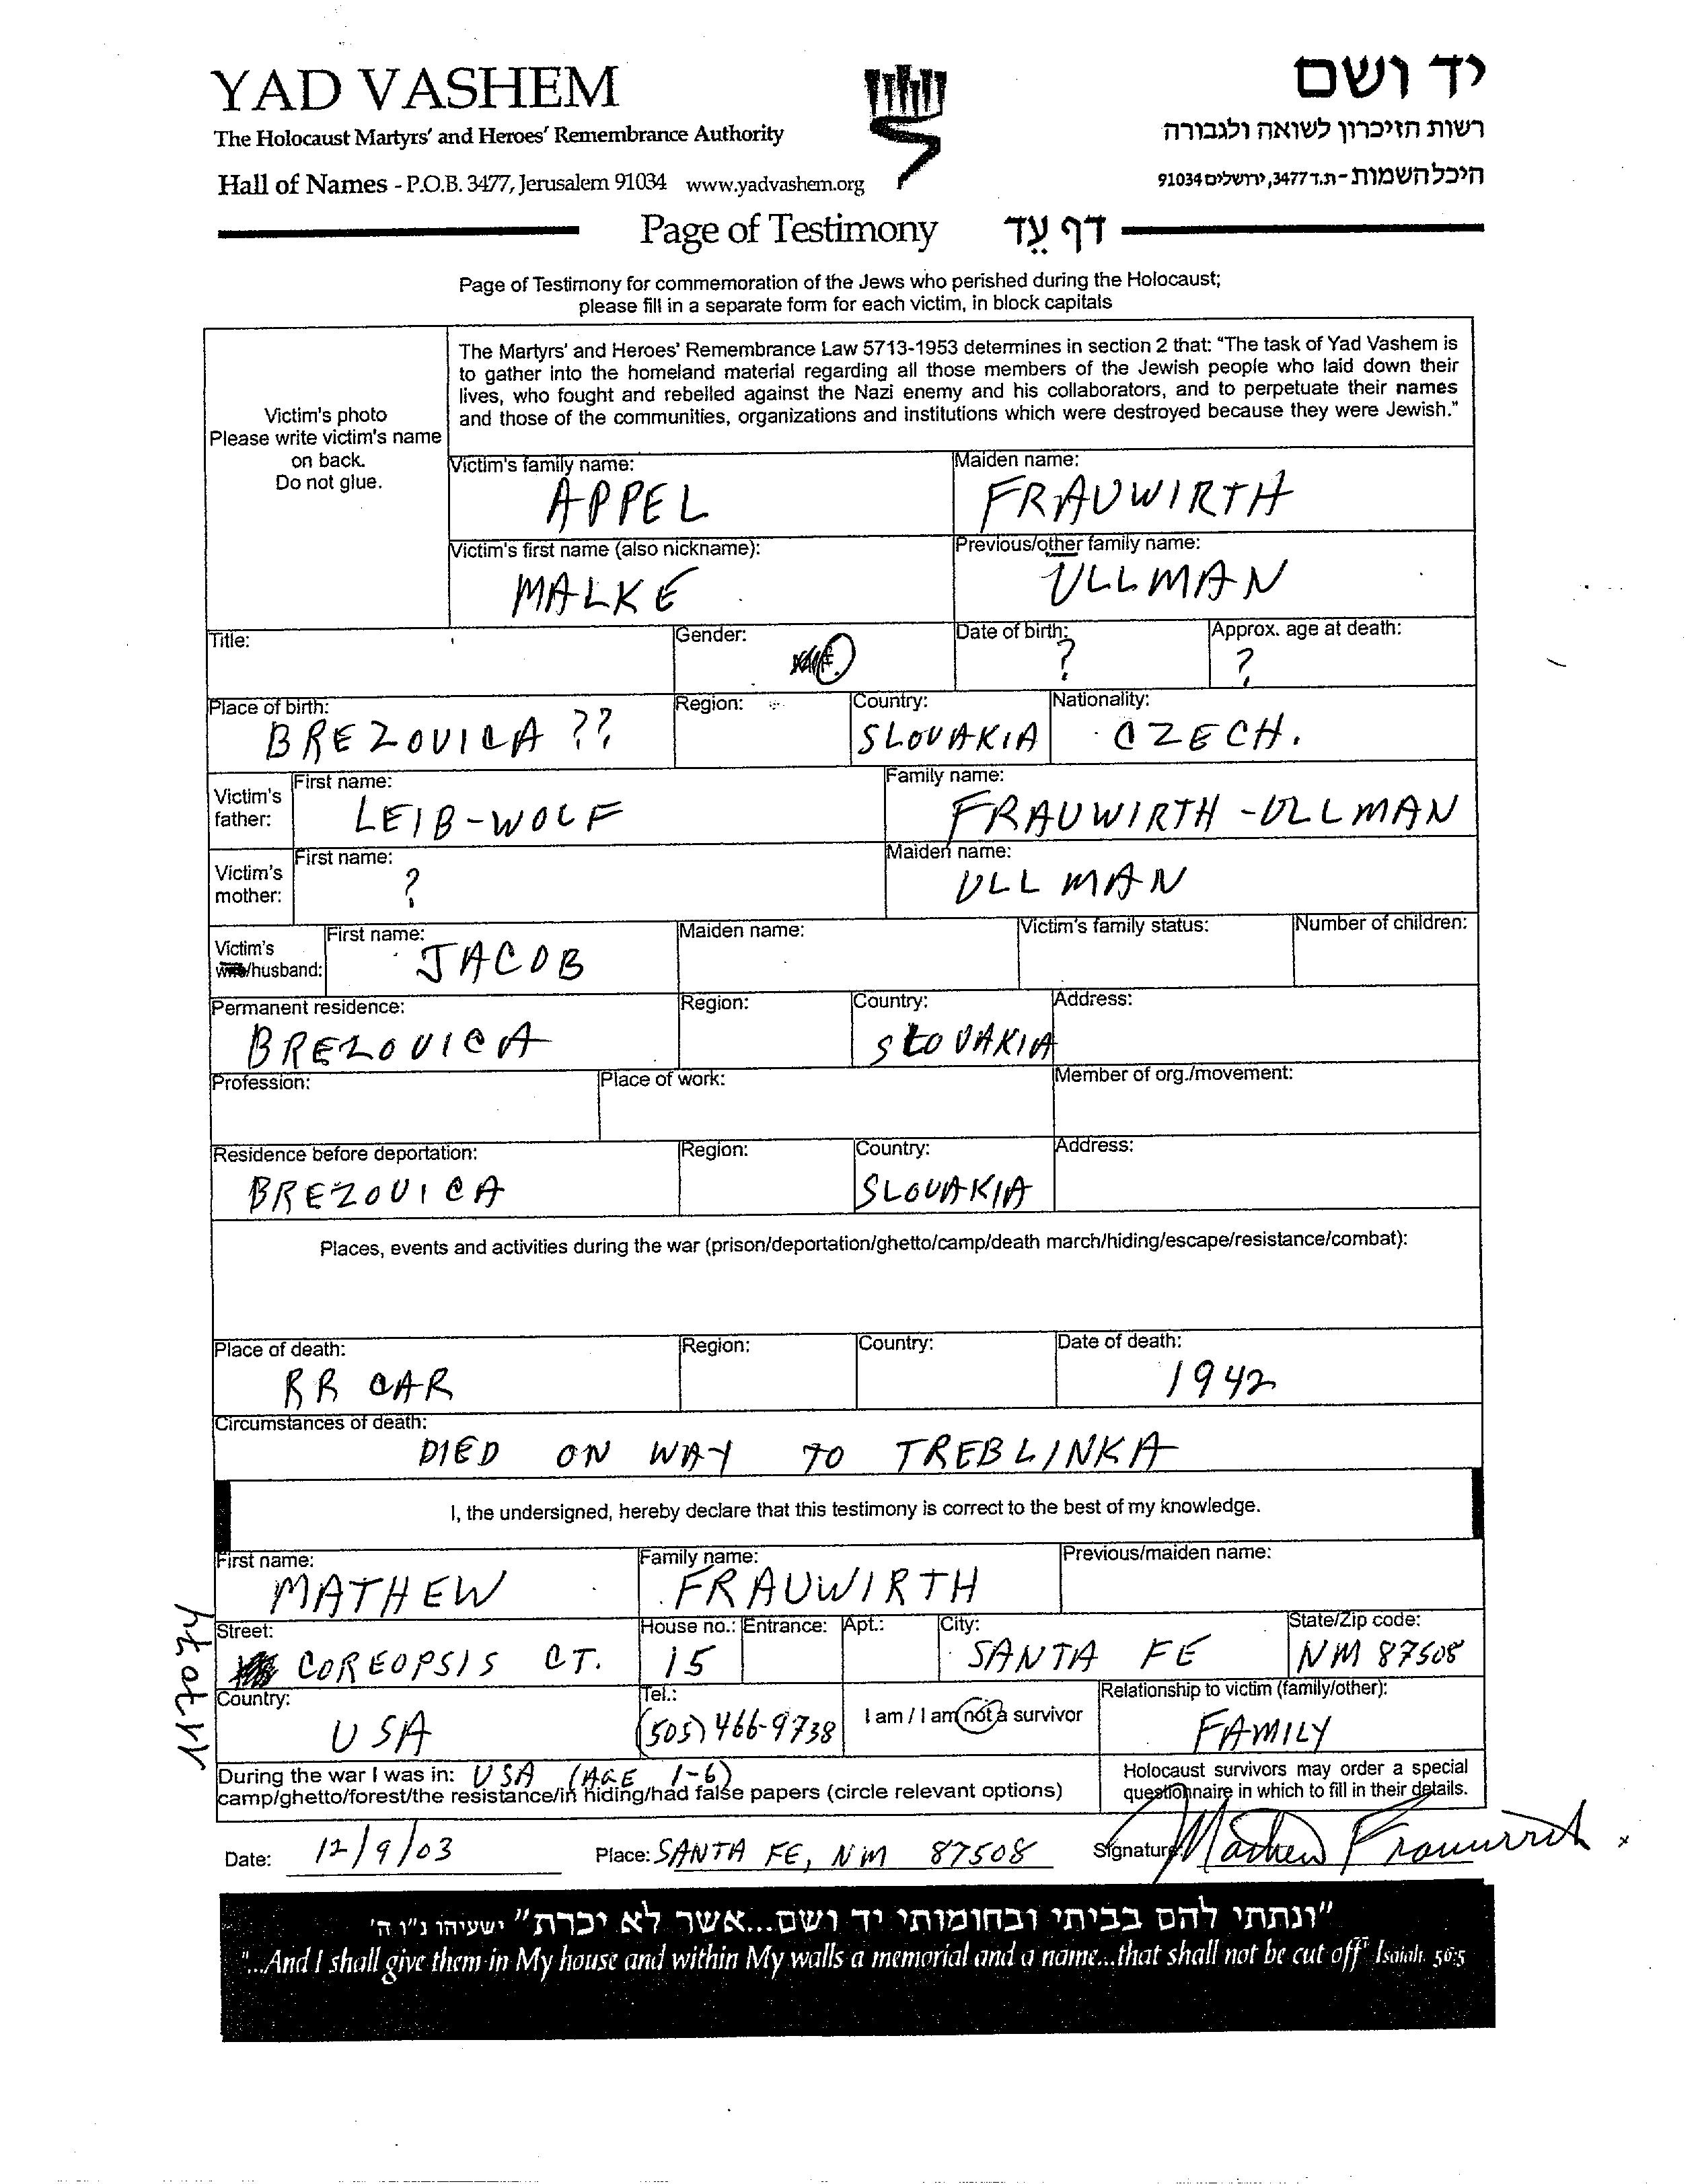 YAD VASHEM
The Holocaust Martyrs' and Heroes' Remembrance Authority
Hall of Names - P.O.B. 3477, Jerusalem 91034 www.yadvashem.org
יד ושם
רשות הזיכרון לשואה ולגבורה
היכל השמות - ת.ד 3477, ירושלים 91034
Page of Testimony דף עֵד
Page of Testimony for commemoration of the Jews who perished during the Holocaust;
please fill in a separate form for each victim, in block capitals
Victim's photo
Please write victim's name
on back.
Do not glue.
The Martyrs' and Heroes' Remembrance Law 5713-1953 determines in section 2 that: "The task of Yad Vashem is
to gather into the homeland material regarding all those members of the Jewish people who laid down their
lives, who fought and rebelled against the Nazi enemy and his collaborators, and to perpetuate their names
and those of the communities, organizations and institutions which were destroyed because they were Jewish."
Victim's family name: Maiden name:
APPEL FRAUWIRTH
Victim's first name (also nickname): Previous/other family name:
MALKE ULLMAN
Title: Gender: Date of birth: Approx. age at death:
F. ? ?
Place of birth: Region: Country: Nationality:
BREZOVICA ?? SLOVAKIA CZECH.
Victim's father: First name: Family name:
LEIB-WOLF FRAUWIRTH-ULLMAN
Victim's mother: First name: Maiden name:
? ULLMAN
Victim's /husband: First name: Maiden name: Victim's family status: Number of children:
JACOB
Permanent residence: Region: Country: Address:
BREZOVICA SLOVAKIA
Profession: Place of work: Member of org./movement:
Residence before deportation: Region: Country: Address:
BREZOVICA SLOVAKIA
Places, events and activities during the war (prison/deportation/ghetto/camp/death march/hiding/escape/resistance/combat):
Place of death: Region: Country: Date of death:
RR CAR 1942
Circumstances of death:
DIED ON WAY TO TREBLINKA
I, the undersigned, hereby declare that this testimony is correct to the best of my knowledge.
First name: Family name: Previous/maiden name:
MATHEW FRAUWIRTH
Street: House no.: Entrance: Apt.: City: State/Zip code:
COREOPSIS CT. 15 SANTA FE NM 87508
Country: Tel.: I am / I am not a survivor Relationship to victim (family/other):
USA (505) 466-9738 FAMILY
During the war I was in: USA (AGE 1-6)
camp/ghetto/forest/the resistance/in hiding/had false papers (circle relevant options)
Holocaust survivors may order a special
questionnaire in which to fill in their details.
Date: 12/9/03 Place: SANTA FE, NM 87508 Signature: Mathew Frauwirth
"ונתתי להם בביתי ובחומותי יד ושם...אשר לא יכרת" ישעיהו נ"ו ה'
"...And I shall give them in My house and within My walls a memorial and a name...that shall not be cut off" Isaiah. 56:5